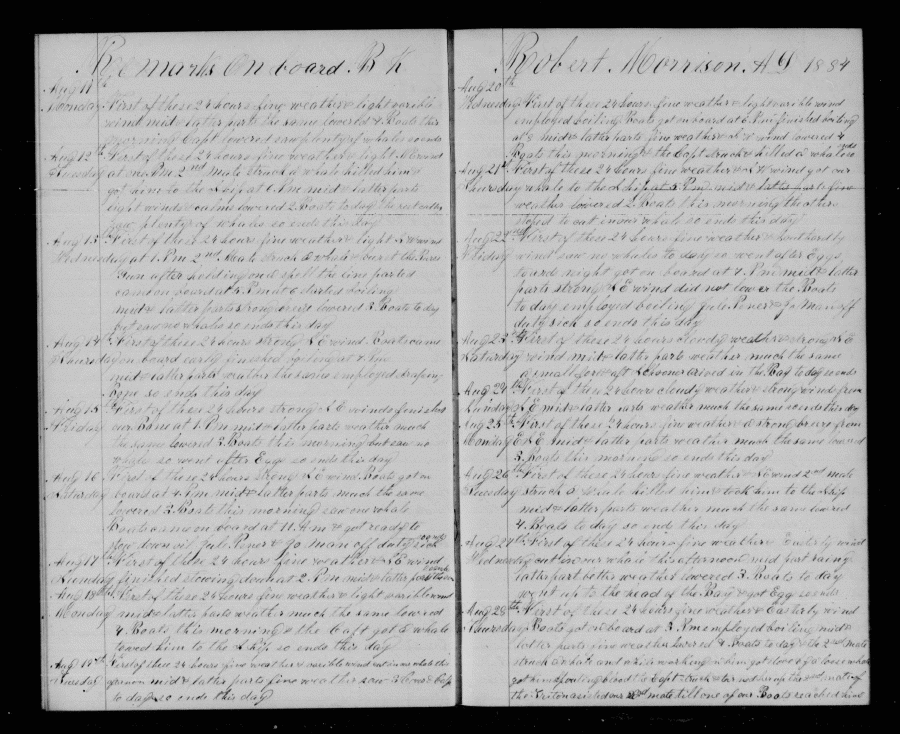 Remarks on board Bk
Aug 11th
Monday First of these 24 hours fine weather & light varible
wind mid & latter parts the same lowered 4 Boats this
morning Capt lowered saw plenty of whales so ends
Aug 12th First of these 24 hours fine weather & light wind
Tuesday at one P.m 2nd Mate struck a whale killed him &
got him to the Ship at P.m mid & latter parts
light winds & calms lowered 2 Boats to day the rest
saw plenty of whales so ends this day
Aug 13 First of these 24 hours fine weather & light wind
Wednesday at 1 P.m 2nd Mate struck a whale
Gun after holding on a spell the line parted
came on board at P.m & started boiling
mid & latter parts strong breeze lowered 3 Boats to day
but saw no whales so ends this day
Aug 14 First of these 24 hours strong S E wind Boats came
Thursday on board early finished boiling at P.m
mid & latter parts weather the same employed
Bone so ends this day
Aug 15 First of these 24 hours strong S E winds finished
Friday our Bone at 1 P.m mid & latter parts weather much
the same lowered 3 Boats this morning but saw no
whales so went after Eggs so ends this day
Aug 16 First of these 24 hours strong S E wind Boats got on
Saturday board at 4 P.m mid & latter parts much the same
lowered 3 Boats this morning saw one whale
Boats came on board at 11 A.m & got ready to
stow down oil Jule Pener & Jo Man off duty sick so ends
Aug 17th First of these 24 hours fine weather & S E wind
Sunday finished stowing down at 2 P.m mid & latter parts the same
Aug 18th First of these 24 hours fine weather & light varible wind
Monday mid & latter parts weather much the same lowered
4 Boats this morning & the Capt got a whale
towed him to the Ship so ends this day
Aug 19th First of these 24 hours fine weather & varible wind cut in our whale this
Tuesday afternoon mid & latter parts fine weather saw
to day so ends this day
Robert Morrison AD 1884
Aug 20th
Wednesday First of these 24 hours fine weather & light varible wind
employed boiling Boats got on board at 6 P.m finished boiling
at 8 mid & latter parts fine weather & wind lowered 4
Boats this morning & the Capt struck & killed a whale so ends
Aug 21st First of these 24 hours fine weather & S W wind got our
Thursday whale to the Ship at 3 P.m mid & latter parts fine
weather lowered 2 Boats this morning the others
stoped to cut in our whale so ends this day
Aug 22nd First of these 24 hours fine weather & southard by
Friday wind saw no whales to day so went after Eggs
towards night got on board at 4 P.m mid & latter
parts strong S E wind did not lower the Boats
to day employed boiling Jule Pener & Jo Man off
duty sick so ends this day
Aug 23rd First of these 24 hours cloudy weather & strong S E
Saturday wind mid & latter parts weather much the same
a small fore & aft Schooner arived in the Bay to day so ends
Aug 24th First of these 24 hours cloudy weather & strong winds from
Sunday S E mid & latter parts weather much the same so ends this day
Aug 25th First of these 24 hours fine weather & strong breeze from
Monday E S E mid & latter parts weather much the same lowered
3 Boats this morning so ends this day
Aug 26th First of these 24 hours fine weather & S wind 2nd mate
Tuesday struck a whale killed him & took him to the Ship
mid & latter parts weather much the same lowered
4 Boats to day so ends this day
Aug 27th First of these 24 hours fine weather & Easterly wind
Wednesday cut in our whale this afternoon mid part rainy
latter part better weather lowered 3 Boats to day
went up to the head of the Bay & got Eggs so ends
Aug 28th First of these 24 hours fine weather & Easterly wind
Thursday Boats got on board at 3 P.m employed boiling mid &
latter parts fine weather lowered 4 Boats to day & the 2nd Mate
struck a whale and while working on him got stove & a loose whale
got him spouting blood the Capt struck
the Triton asisted our mate till one of our Boats reached him